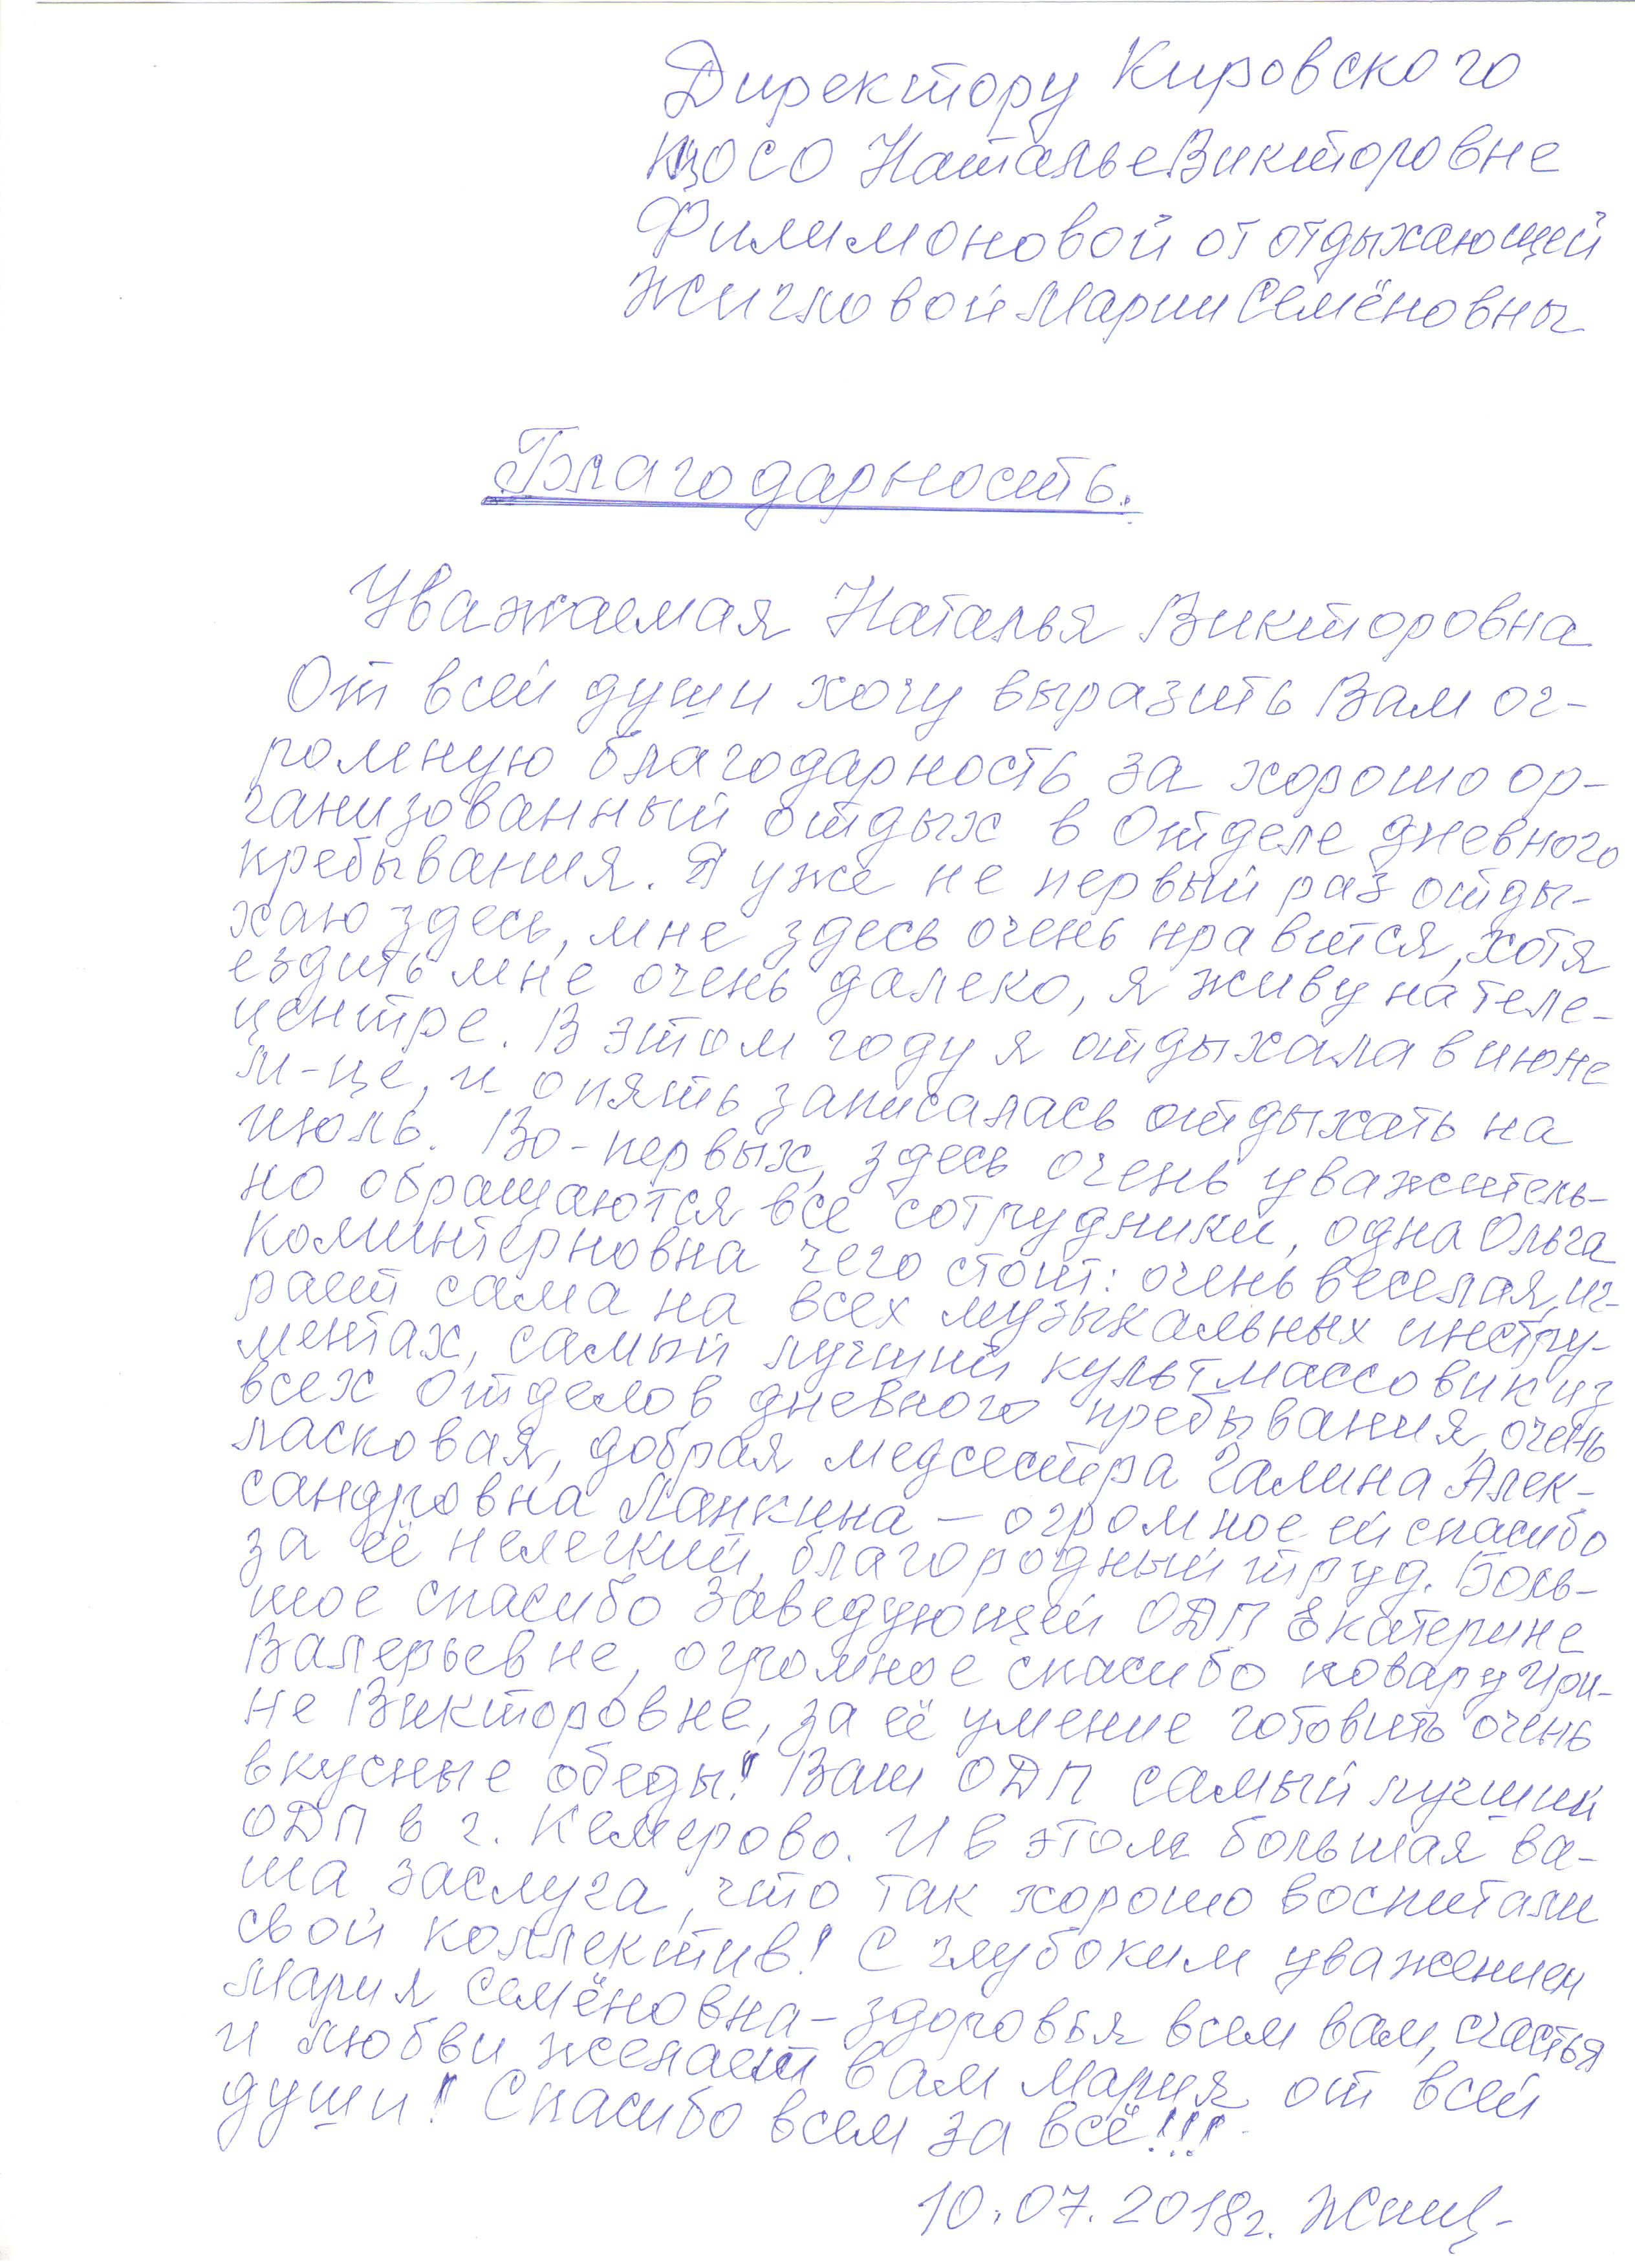 Директору Кировского
ЦОСО Наталье Викторовне
Филимоновой от отдыхающей
Жичковой Марии Семёновны
Благодарность.
Уважаемая Наталья Викторовна
От всей души хочу выразить Вам ог-
ромную благодарность за хорошо ор-
ганизованный отдых в Отделе дневного
пребывания. Я уже не первый раз отды-
хаю здесь, мне здесь очень нравится, хотя
ездить мне очень далеко, я живу на теле-
центре. В этом году я отдыхала в июне
м-це, и опять записалась отдыхать на
июль. Во-первых, здесь очень уважитель-
но обращаются все сотрудники, одна Ольга
Коминтерновна чего стоит: очень веселая, иг-
рает сама на всех музыкальных инстру-
ментах, самый лучший культмассовик из
всех отделов дневного пребывания, очень
ласковая, добрая медсестра Галина Алек-
сандровна – огромное ей спасибо
за её нелегкий, благородный труд. Боль-
шое спасибо Заведующей ОДП Екатерине
Валерьевне, огромное спасибо повару Ири-
не Викторовне, за её умение готовить очень
вкусные обеды! Ваш ОДП самый лучший
ОДП в г. Кемерово. И в этом большая ва-
ша заслуга, что так хорошо воспитали
свой коллектив! С глубоким уважением
Мария Семёновна – здоровья всем вам, счастья
и любви желает вам Мария от всей
души! Спасибо всем за всё!!!
10.07.2018г.